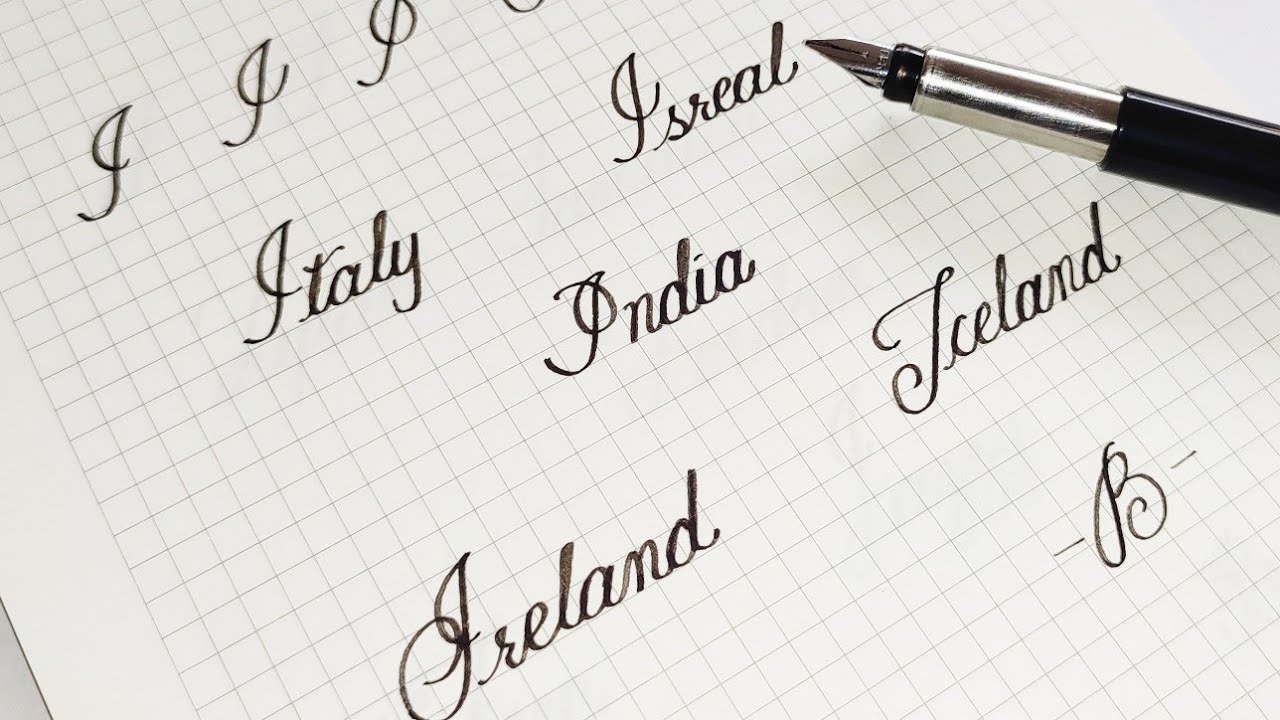 I I I
Isreal
Italy India Iceland
Ireland
-B-